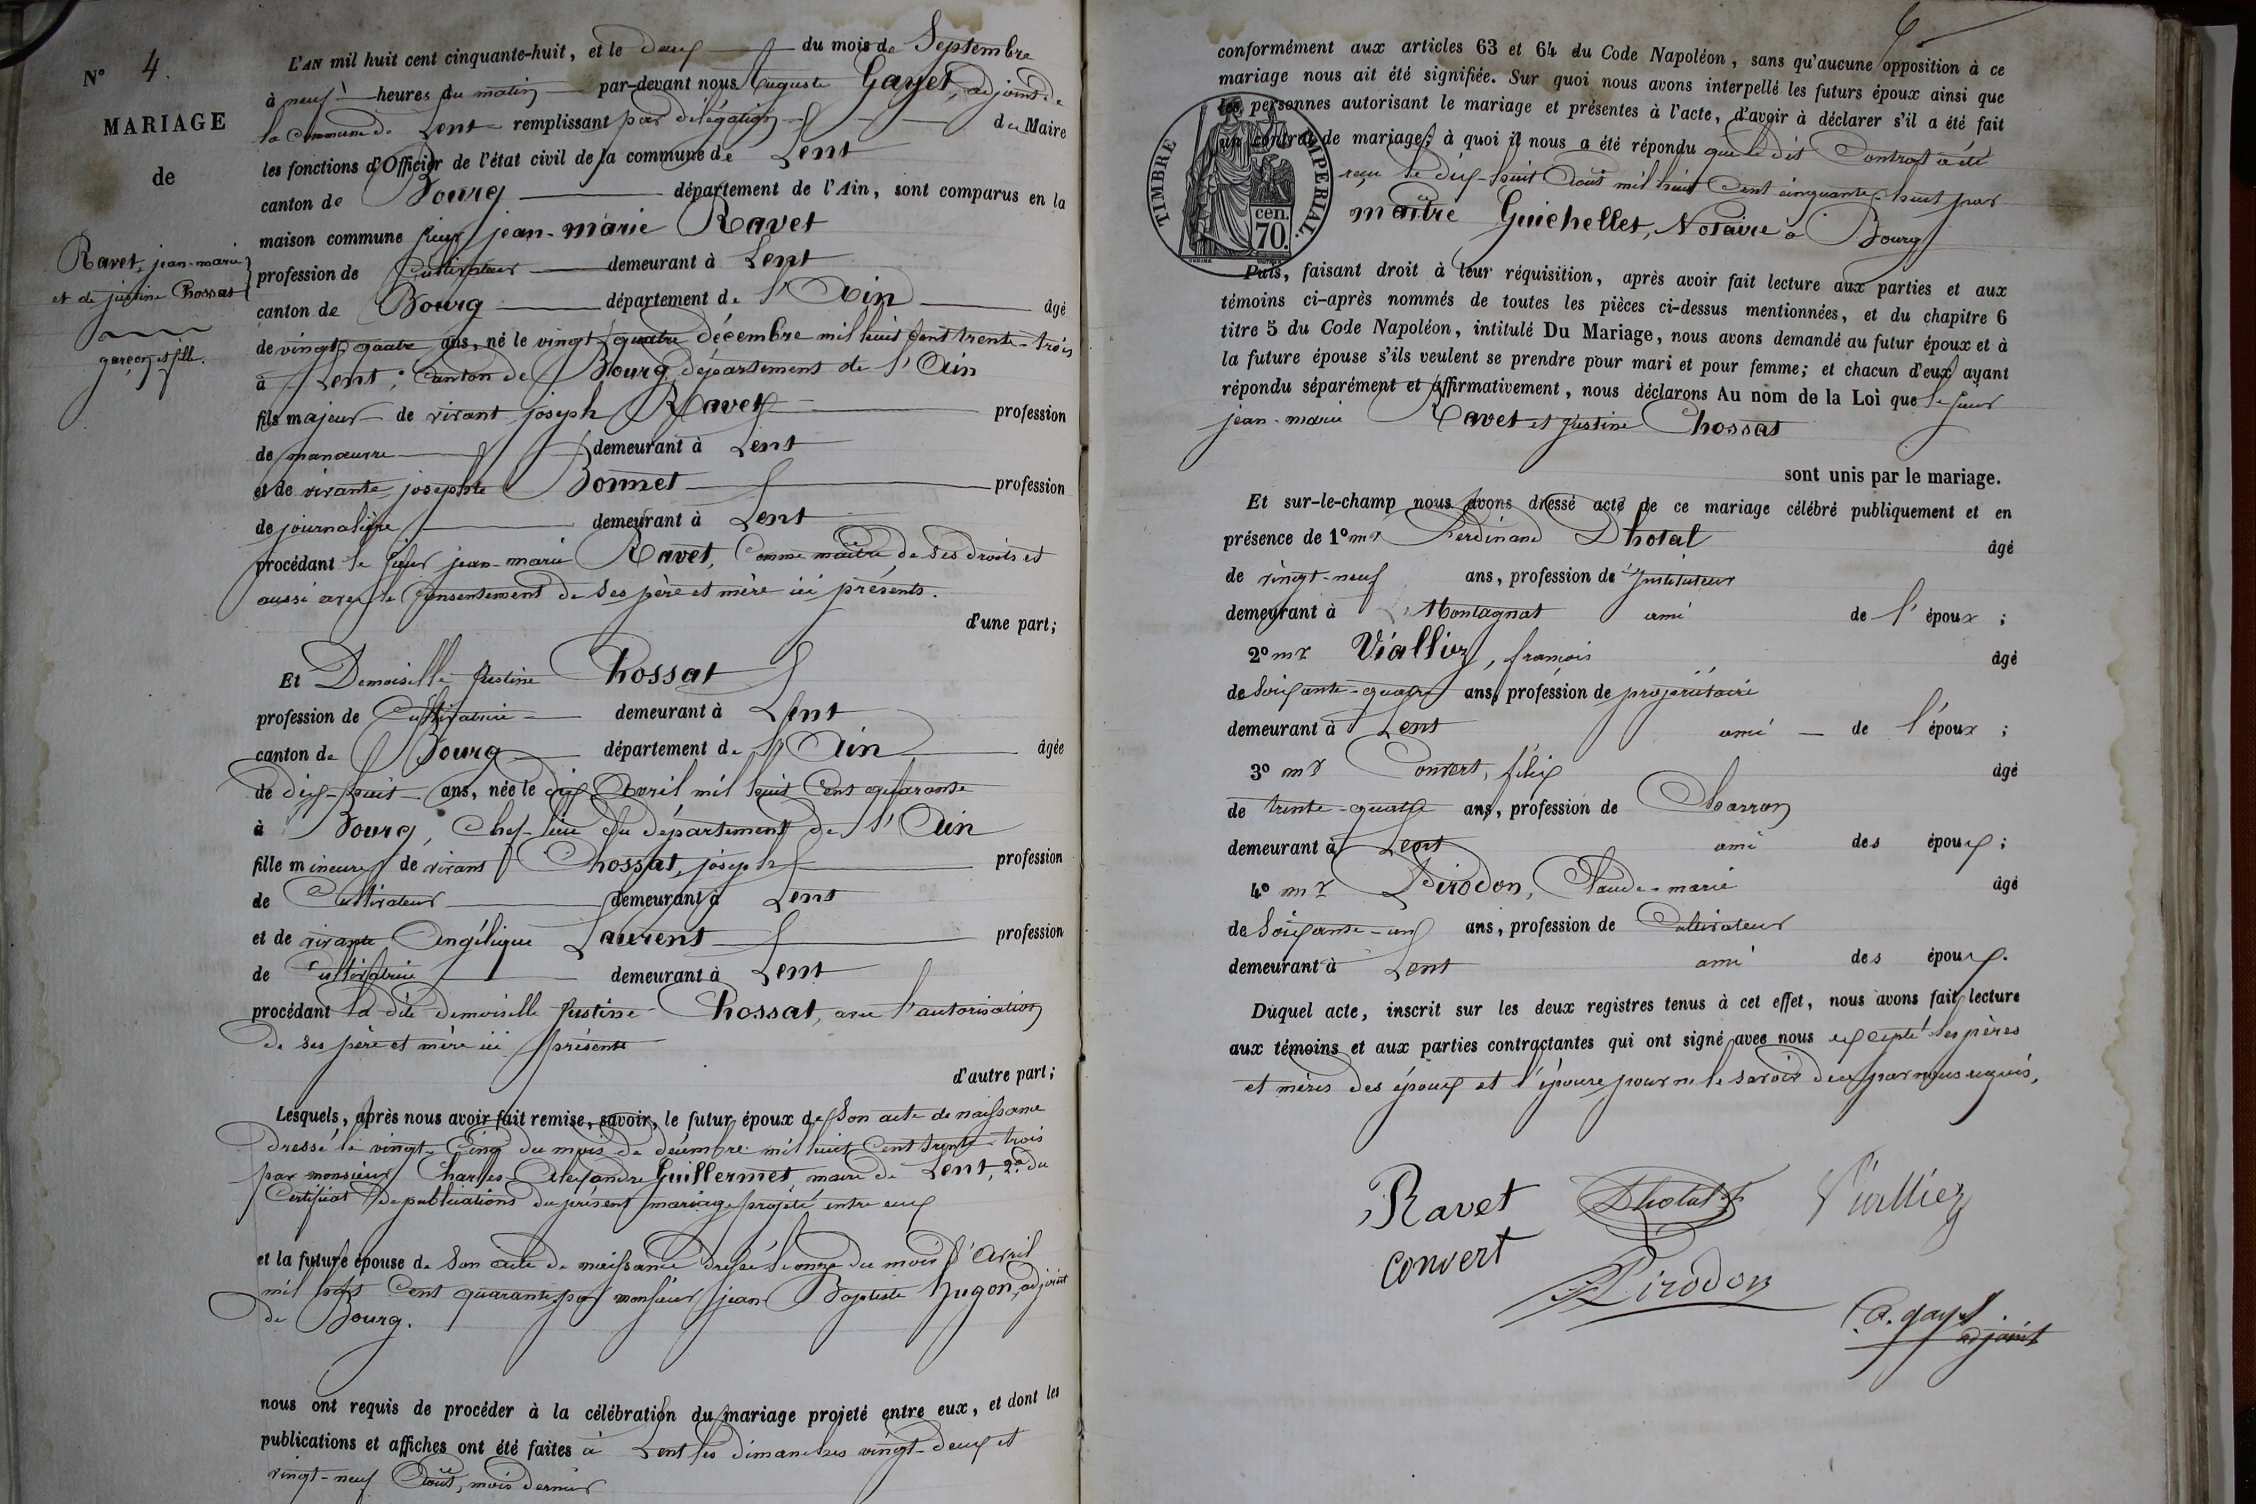 N° 4.
MARIAGE
de
Ravet, jean-marie
et de justine Chossat
garçon et fille.
L'AN mil huit cent cinquante-huit, et le deux du mois de Septembre
à neuf heures du matin par-devant nous Auguste Gayet, adjoint de
la commune de Lent remplissant par délégation du Maire
les fonctions d'Officier de l'état civil de la commune de Lent
canton de Bourg département de l'Ain, sont comparus en la
maison commune sieur jean-marie Ravet
profession de Cultivateur demeurant à Lent
canton de Bourg département de l'Ain âgé
de vingt quatre ans, né le vingt quatre décembre mil huit cent trente-trois
à Lent, Canton de Bourg, département de l'Ain
fils majeur de vivant joseph Ravet profession
de manœuvre demeurant à Lent
et de vivante josephte Bonnet profession
de journalière demeurant à Lent
procédant le sieur jean-marie Ravet, Comme maître de ses droits et
aussi avec le Consentement de ses père et mère ici présents.
d'une part;
Et Demoiselle justine Chossat
profession de Cultivatrice demeurant à Lent
canton de Bourg département de l'Ain âgée
de dix-huit ans, née le dix Avril mil huit Cent quarante
à Bourg, Chef-lieu du département de l'Ain
fille mineure de vivant Chossat, joseph profession
de Cultivateur demeurant à Lent
et de vivante Angélique Laurent profession
de Cultivatrice demeurant à Lent
procédant la dite demoiselle justine Chossat, avec l'autorisation
de ses père et mère ici présents
d'autre part;
Lesquels, après nous avoir fait remise, savoir, le futur époux de son acte de naissance
dressé le vingt-cinq du mois de décembre mil huit Cent trente-trois
par monsieur Charles-Alexandre Guillermet, maire de Lent, 2° du
Certificat de publications du présent mariage projeté entre eux
et la future épouse de son acte de naissance dressé le onze du mois d'Avril
mil huit Cent quarante par monsieur jean Baptiste Hugon, adjoint
de Bourg.
nous ont requis de procéder à la célébration du mariage projeté entre eux, et dont les
publications et affiches ont été faites à Lent les dimanches vingt-deux et
vingt-neuf Août, mois dernier
conformément aux articles 63 et 64 du Code Napoléon, sans qu'aucune opposition à ce
mariage nous ait été signifiée. Sur quoi nous avons interpellé les futurs époux ainsi que
les personnes autorisant le mariage et présentes à l'acte, d'avoir à déclarer s'il a été fait
un contrat de mariage; à quoi il nous a été répondu que le dit Contrat a été
reçu le dix-huit Août mil huit Cent cinquante-huit par
maître Guichellet, Notaire à Bourg
TIMBRE IMPERIAL.
cen.
70.
Puis, faisant droit à leur réquisition, après avoir fait lecture aux parties et aux
témoins ci-après nommés de toutes les pièces ci-dessus mentionnées, et du chapitre 6
titre 5 du Code Napoléon, intitulé Du Mariage, nous avons demandé au futur époux et à
la future épouse s'ils veulent se prendre pour mari et pour femme; et chacun d'eux ayant
répondu séparément et affirmativement, nous déclarons Au nom de la Loi que le sieur
jean-marie Ravet et justine Chossat
sont unis par le mariage.
Et sur-le-champ nous avons dressé acte de ce mariage célébré publiquement et en
présence de 1° mr Ferdinand Dhotal âgé
de vingt-neuf ans, profession de Instituteur
demeurant à Montagnat ami de l'époux;
2° mr Viallier, francois âgé
de soixante-quatre ans, profession de propriétaire
demeurant à Lent ami de l'époux;
3° mr Convert, félix âgé
de trente-quatre ans, profession de Charron
demeurant à Lent ami des époux;
4° mr Pirodon, Claude-marie âgé
de soixante-un ans, profession de Cultivateur
demeurant à Lent ami des époux.
Duquel acte, inscrit sur les deux registres tenus à cet effet, nous avons fait lecture
aux témoins et aux parties contractantes qui ont signé avec nous excepté les pères
et mères des époux et l'épouse pour ne le savoir de ce par nous requis.
Ravet Dhotal Viallier
Convert
Pirodon
A. gayet
adjoint